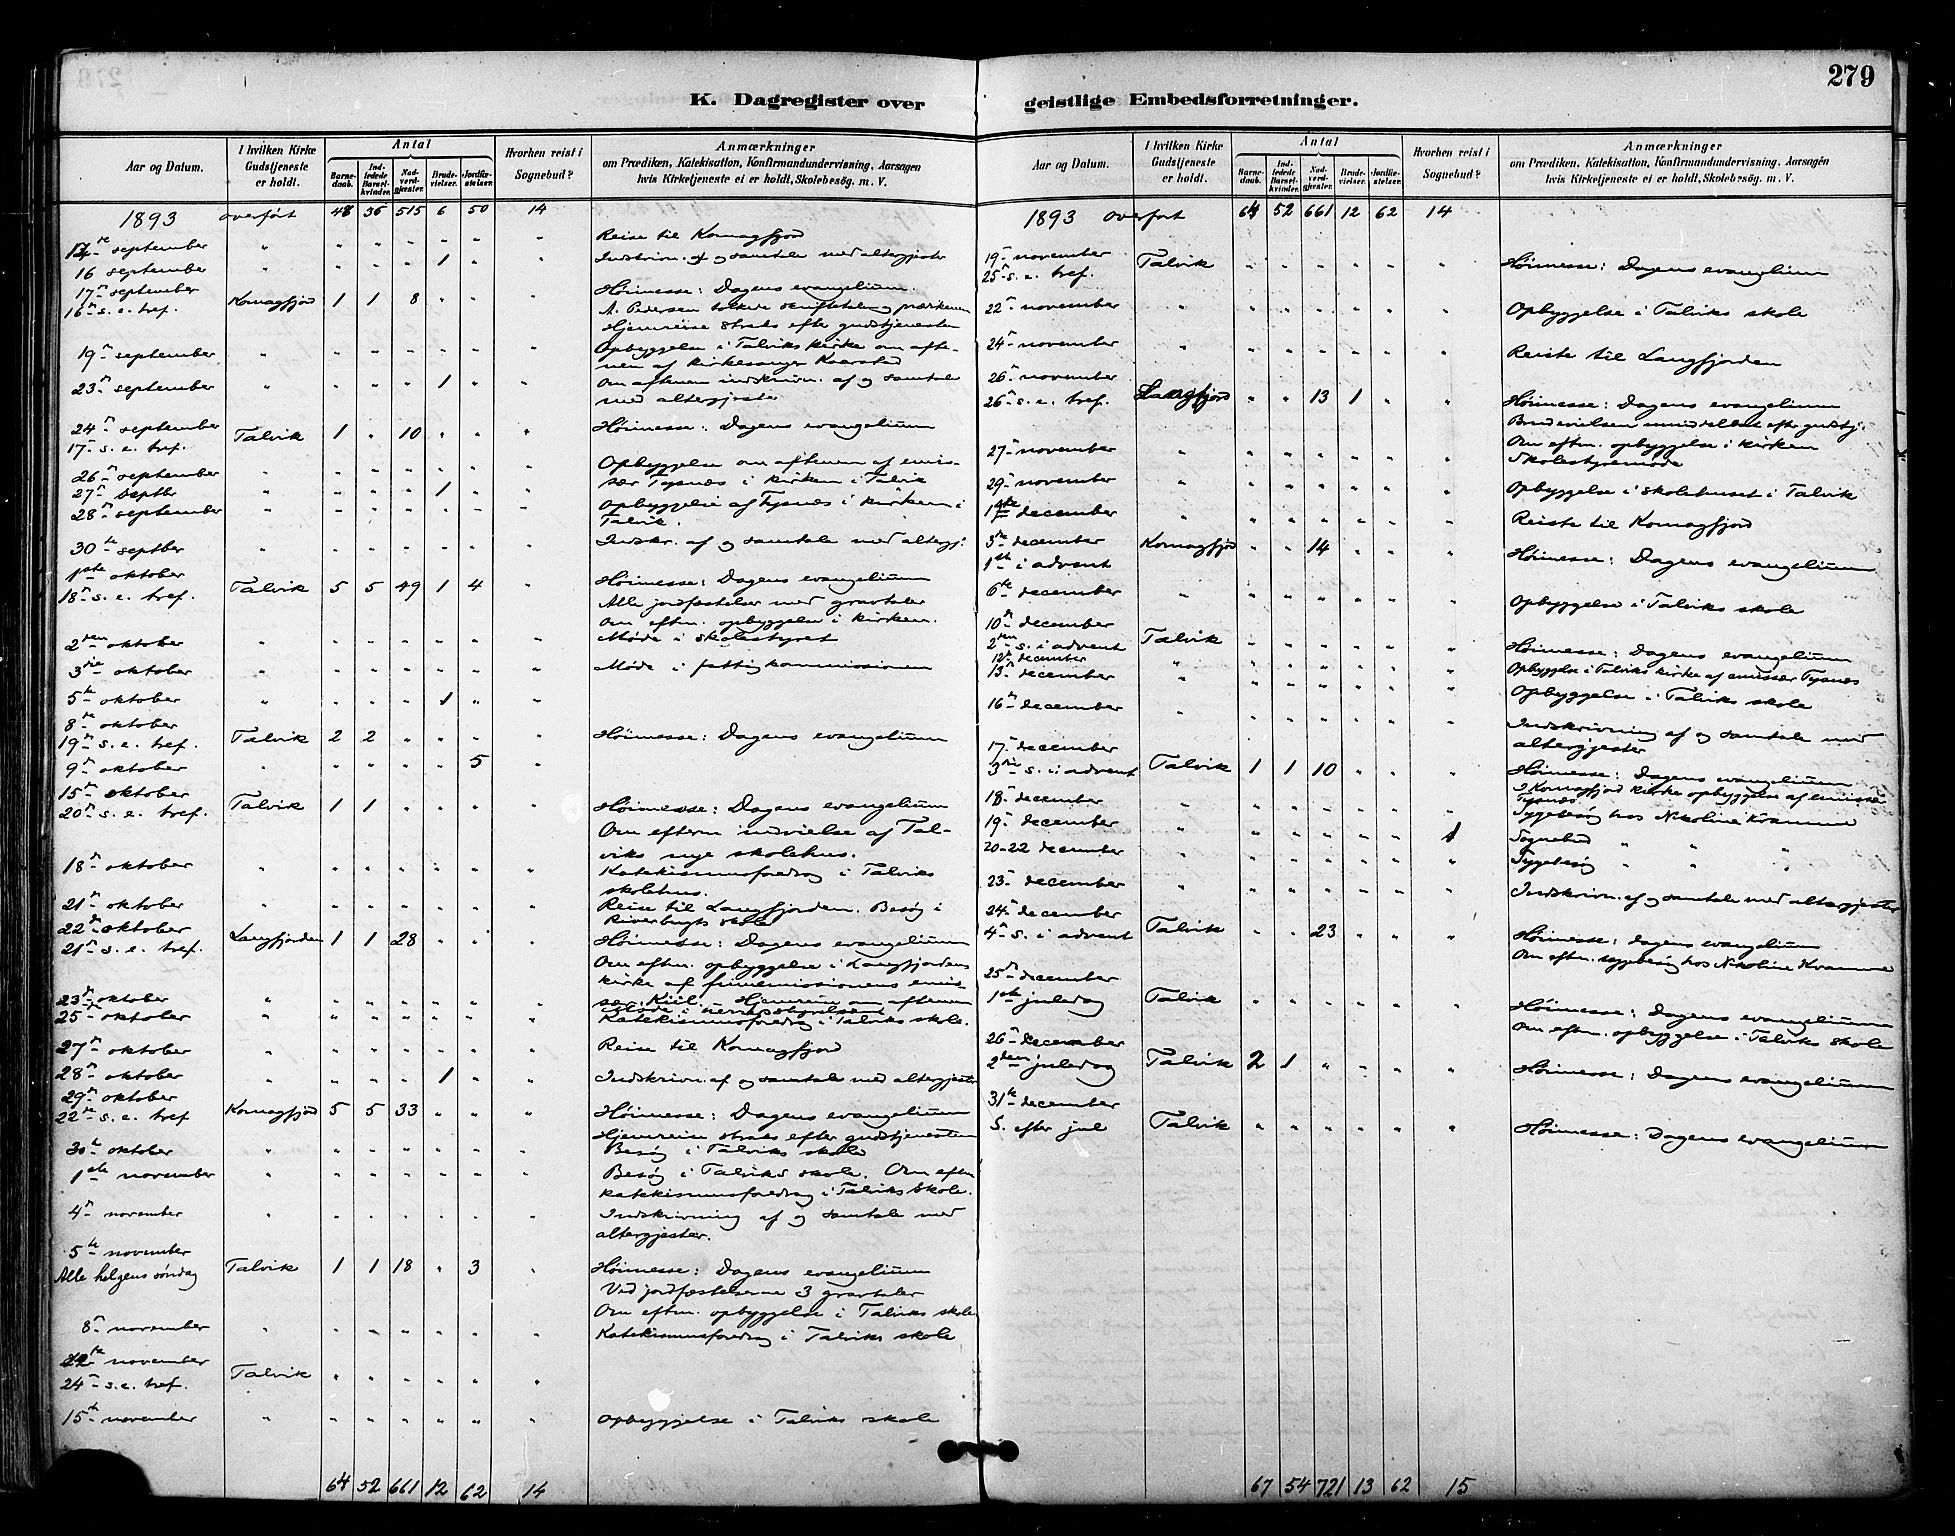 279
K. Dagregister over geistlige Embedsforretninger.
Aar og Datum.
I hvilken Kirke Gudstjeneste er holdt.
Antal
Barne-daab.
Ind-ledede Barsel-kvinder.
Nad-verd-gjester.
Brude-vielser.
Jordfæ-stelser.
Hvorhen reist i Sognebud?
Anmærkninger
om Prædiken, Katekisation, Konfirmandundervisning, Aarsagen
hvis Kirketjeneste ei er holdt, Skolebesøg. m. V.
1893 overført 48 36 515 6 50 14
september " " " " " " " Reise til Komagfjord
16 september " " " " 1 " " Indskrivn. af og samtale med altergjester
17 september
16 s. e. tref. Komagfjord 1 1 8 " " " Høimesse: Dagens evangelium.
A. Pedersen tolkede skriftetalen og prækenen
Hjemreise straks efter gudstjenesten
19 september " " " " " " " Opbyggelse i Talviks kirke om afte-
nen af kirkesanger Kaarstad
23 september " " " " 1 " " Om aftenen indskrivn. af og samtale
med altergjester
24 september
17 s. e. tref. Talvik 1 " 10 " " " Høimesse: Dagens evangelium
26 september " " " " " " " Opbyggelse om aftenen af emis-
sær Tysnæs i kirken i Talvik
27 septbr " " " " 1 " "
28 september " " " " " " " Opbyggelse af Tysnæs i kirken i
Talvik.
30te septber " " " " " " " Indskr. af og samtale med altergj:
1ste oktober
18 s. e. tref. Talvik 5 5 49 1 4 Høimesse: Dagens evangelium
Alle jordfæstelser med gravtaler
Om eftm. opbyggelse i kirken.
2den oktober " " " " " " " Møde i skolestyret
3die oktober " " " " " " " Møde i fattigkommissionen
5te oktober " " " " 1 " "
8de oktober
19 s. e. tref. Talvik 2 2 " " " " Høimesse: Dagens evangelium
9de oktober " " " " " 5 "
15 oktober
20 s. e. tref. Talvik 1 1 " " " " Høimesse: Dagens evangelium
Om efterm indvielse af Tal-
viks nye skolehus.
18 oktober " " " " " " " Katekismusforedrag i Talviks
skolehus.
21 oktober " " " " " " " Reise til Langfjorden. Besøg i
Riverbugts skole
22de oktober
21 s. e. tref. Langfjorden 1 1 28 " " " Høimesse: Dagens evangelium
Om eftm. opbyggelse i Langfjordens
kirke af finnemissionens emis-
sær Kiil. – Hjemreise om aftenen
23de oktober " " " " " " " Møde i herredsstyrelsen
25de oktober " " " " " " " Katekismusforedrag i Talviks skole.
27 oktober " " " " " " " Reise til Komagfjord
28 oktober " " " " 1 " " Indskrivn. af og samtale med altergjester
29 oktober
22 s. e. tref Komagfjord 5 5 33 " " " Høimesse: Dagens evangelium
Hjemreise straks efter gudstjenesten
30te oktober " " " " " " " Besøg i Talviks skole
1ste november " " " " " " " Besøg i Talviks skole. Om eftm
katekismusforedrag i Talviks skole.
4 november " " " " " " " Indskrivning af og samtale med
altergjester.
5te november
Alle helgens søndag Talvik 1 1 18 " 3 " Høimesse: Dagens evangelium
Ved jordfæstelserne 3 gravtaler
Om eftm. opbyggelse i Talviks skole
8 november " " " " " " " Katekismusforedrag i Talviks skole
november
24 s. e. tref. Talvik " " " " " "
15te november " " " " " " " Opbyggelse i Talviks skole
64 52 661 12 62 14
Aar og Datum.
I hvilken Kirke Gudstjeneste er holdt.
Antal
Barne-daab.
Ind-ledede Barsel-kvinder.
Nad-verd-gjester.
Brude-vielser.
Jordfæ-stelser.
Hvorhen reist i Sognebud?
Anmærkninger
om Prædiken, Katekisation, Konfirmandundervisning, Aarsagen
hvis Kirketjeneste ei er holdt, Skolebesøg. m. V.
1893 overført 64 52 661 12 62 14
19 november
25 s. e. tref. Talvik " " " " " " Høimesse: Dagens evangelium
22 november " " " " " " " Opbyggelse i Talviks skole
24 november " " " " " " " Reiste til Langfjorden
26 november
26 s. e. tref. Langfjord " " 13 1 " " Høimesse: Dagens evangelium
Brudevielsen umiddelbart efter gudstj.
Om eftm. opbyggelse i kirken
27 november " " " " " " " Skolestyremøde
29 november " " " " " " " Opbyggelse i skolehuset i Talvik
1ste december " " " " " " " Reiste til Komagfjord
3die december
1st i advent Komagfjord " " 14 " " " Høimesse: Dagens evangelium
6te december " " " " " " " Opbyggelse i Talviks skole
10de december
2den s. i advent Talvik " " " " " " Høimesse: Dagens evangelium
12 december " " " " " " " Opbyggelse i Talviks kirke af emissær Tysnæs
13 december " " " " " " " Opbyggelse i Talviks skole
16 december " " " " " " " Indskrivning af og samtale med
altergjester
17 december
3die s. i advent Talvik 1 1 10 " " " Høimesse: Dagens evangelium
I Komagfjord kirke opbyggelse af emissær
Tysnæs
18 december " " " " " " " Sygebesøg hos Nikoline Kramme
19 december " " " " " " 1 Sognebud " " "
20-22 december " " " " " " " Sygebesøg " " "
23 december " " " " " " " Indskrivn. af og samtale med altergjester
24 december
4 s. i advent Talvik " " 23 " " " Høimesse: dagens evangelium
Om eftm. sygebesøg hos Nikoline Kramme
25 december
1ste juledag Talvik " " " " " " Høimesse: Dagens evangelium
Om eftm. opbyggelse i Talviks skole
26 december
2den juledag Talvik 2 1 " " " " Høimesse: Dagens evangelium
31te december
S. efter jul Talvik " " " " " " Høimesse: Dagens evangelium
67 54 721 13 62 15